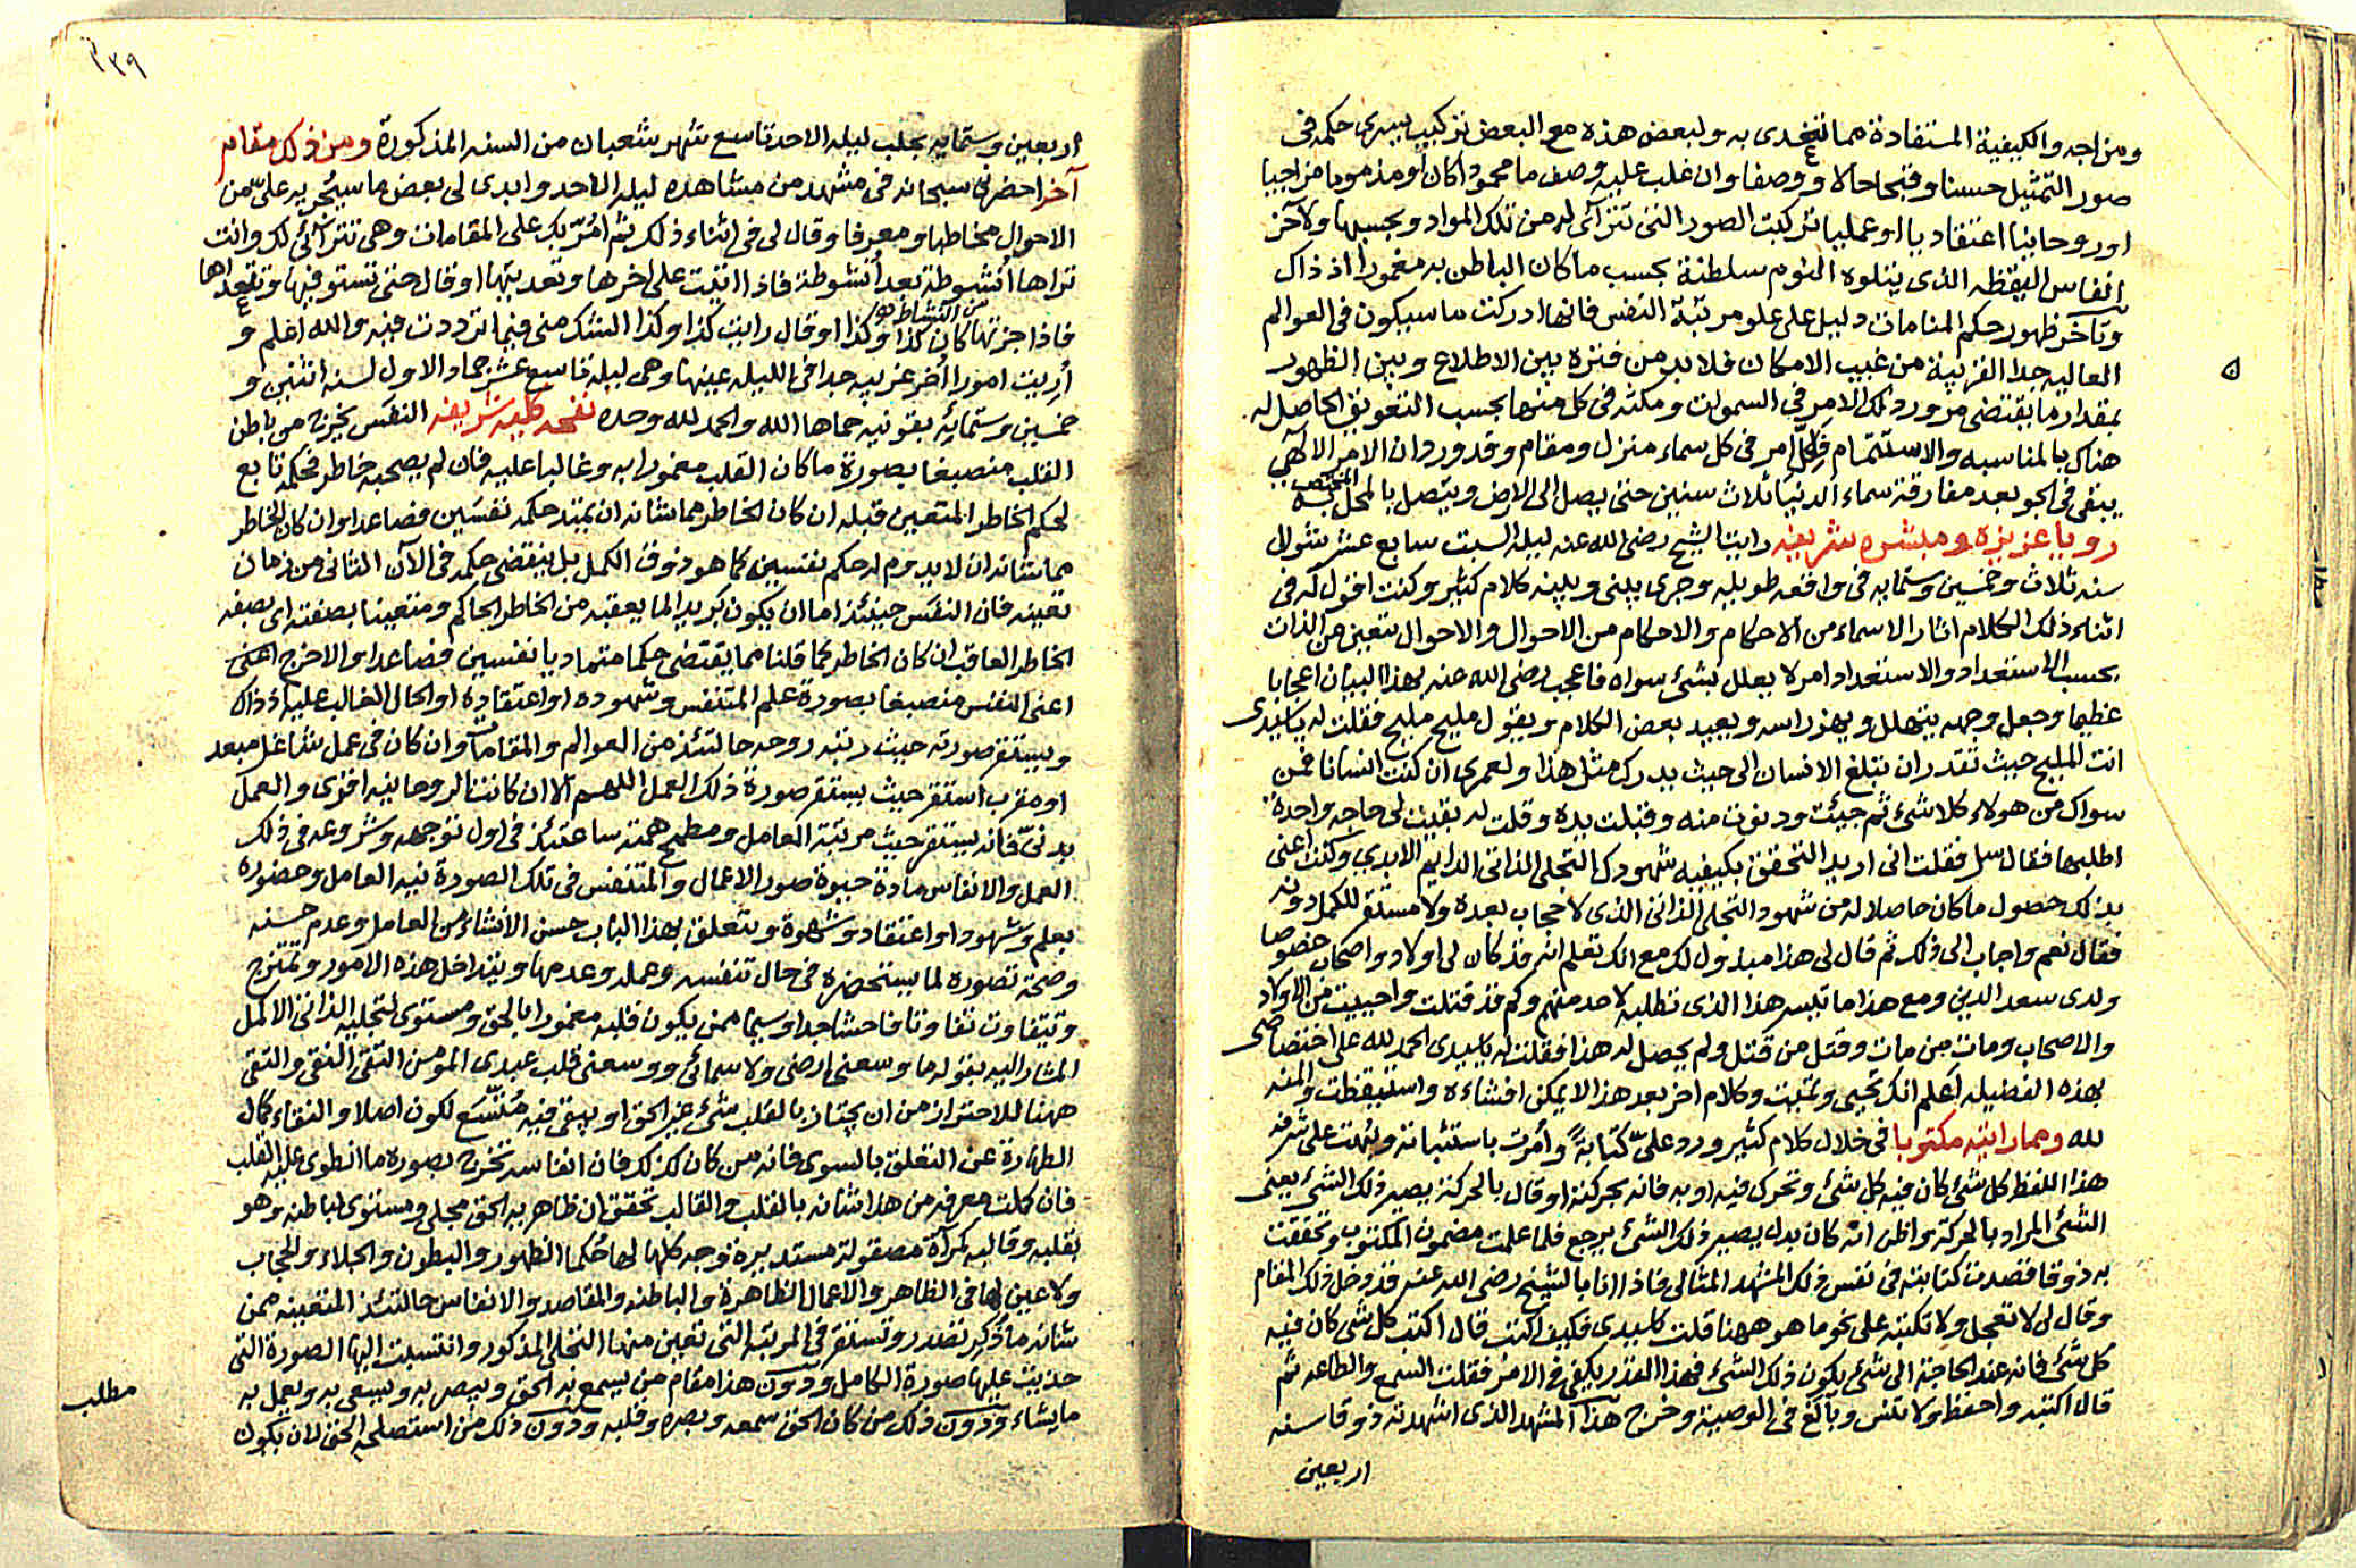 ومزاجه والكيفية المستفادة مما تغذى به ولبعض هذه مع البعض تركيب يسرى حكمه فى
صور التمثيل حسنا وقبحا حالا ووصفا وان غلب عليه وصف ما محمودا كان أو مذموما مزاجيا
او روحانيا اعتقاديا او عمليا تركبت الصور التى تتراآى له من تلك المواد وبحسبها ولآخر
انفاس اليقظه الذى يتلوه النوم سلطنة بحسب ما كان الباطن به مغمورا اذ ذاك
وتأخر ظهور حكم المنامات دليل على علو مرتبة النفس فانها ادركت ما سيكون فى العوالم
العاليه جدا القريبة من غيب الامكان فلا بد من فترة بين الاطلاع وبين الظهور
بمقدار ما يقتضى مرور ذلك الامر فى السموات ومكثه فى كل منها بحسب التعويق الحاصل له
هناك بالمناسبه والاستتمام فلكل امر فى كل سماء منزل ومقام وقد ورد ان الامر الالهى
يبقى فى الجو بعد مفارقة سماء الدنيا ثلاث سنين حتى يصل الى الارض ويتصل بالمحل المختص به
رويا عزيزه ومبشره شريفه رايت الشيخ رضى الله عنه ليله السبت سابع عشر شوال
سنه ثلاث وخمسين وستمايه فى واقعه طويله وجرى بينى وبينه كلام كثير وكنت اقول له فى
اثناء ذلك الكلام اثار الاسماء من الاحكام والاحكام من الاحوال والاحوال تتعين من الذات
بحسب الاستعداد والاستعداد امر لا يعلل بشئ سواه فاعجب رضى الله عنه بهذا البيان اعجابا
عظيما وجعل وجهه يتهلل ويهز راسه ويعيد بعض الكلام ويقول مليح مليح فقلت له يا سيدى
انت المليح حيث تقدر ان تبلغ الانسان الى حيث يدرك مثل هذا ولعمرى ان كنت انسانا فمن
سواك من هولاء كلا شئ ثم جيئت ودنوت منه وقبلت يده وقلت له بقيت لى حاجه واحدة
اطلبها فقال سل فقلت انى اريد التحقق بكيفيه شهودك التجلى الذاتى الدايم الابدى وكنت اعنى
بذلك حصول ما كان حاصلا له من شهود التجلى الذاتى الذى لا حجاب بعده ولا مستقر للكمل دونه
فقال نعم واجاب الى ذلك ثم قال لى هذا مبذول لك مع انك تعلم انه قد كان لى اولاد واصحاب خصوصا
ولدى سعد الدين ومع هذا ما تيسر هذا الذى تطلبه لاحد منهم وكم قد قتلت واحييت من الاولاد
والاصحاب ومات من مات وقتل من قتل ولم يحصل له هذا فقلت له يا سيدى الحمد لله على اختصاصى
بهذه الفضيله اعلم انك تحيى وتميت وكلام اخر بعد هذا لا يمكن افشاءه واستيقظت والمنه
لله ومما رايته مكتوبا فى خلال كلام كثير ورد على كتابة وأمرت باستثباته ونبهت على شرفه
هذا اللفظ كل شئ كان فيه كل شئ وتحرك فيه او به فانه بحركته او قال بالحركة يصير ذلك الشئ يعنى
الشئ المراد بالحركة واظن انه كان بدل يصير ذلك الشئ يرجع فلما علمت مضمون المكتوب وتحققت
به ذوقا قصدت كتابته فى نفس ذلك المشهد المثالى فاذا انا بالشيخ رضى الله عنه قد دخل ذلك المقام
وقال لى لا تعجل ولا تكتبه على نحو ما هو ههنا قلت يا سيدى فكيف اكتب قال اكتب كل شئ كان فيه
كل شئ فانه عند الحاجة الى شئ يكون ذلك الشئ فهذا القدر يكفى فى الامر فقلت السمع والطاعه ثم
قال اكتبه واحفظ ولا تنس وبالغ فى الوصية وخرج هذا المشهد الذى اشهدته ذوقا سنه
اربعين
٣٣٩
أربعين وستمايه بحلب ليله الاحد تاسع شهر شعبان من السنه المذكورة ومن ذلك مقام
آخر احضرنى سبحانه فى مشهد من مشاهده ليله الاحد وابدى لى بعض ما سيجريه على من
الاحوال مخاطبا ومعرفا وقال لى فى اثناء ذلك ثم امر بك على المقامات وهى تتراآى لك وانت
تراها انشوطة بعد انشوطة فاذا اتيت على اخرها وتعديتها او قال حتى تستوفيها وتتعداها
من النشاط هو
فاذا جزتها كان كذا وكذا او قال رايت كذا وكذا الشك منى فيما ترددت فيه والله اعلم و
أريت امورا اخر غريبه جدا فى الليله عينها وهى ليله تاسع عشر جماد الاول لسنه اثنين و
خمسين وستمائه بقونيه حماها الله والحمد لله وحده نفحه كليه شريفه النفس يخرج من باطن
القلب منصبغا بصورة ما كان القلب مغمورا به وغالبا عليه فان لم يصحبه خاطر فحكمه تابع
لحكم الخاطر المتعين قبله ان كان الخاطر مما شانه ان يمتد حكمه نفسين فصاعدا وان كان الخاطر
مما شانه ان لا يدوم له حكم نفسين كما هو ذوق الكمل بل ينقضى حكمه فى الآن الثانى من زمان
تعينه فان النفس حينئذ اما ان يكون بريد الما يعقبه من الخاطر الحاكم ومتعينا بصفته اى بصفه
الخاطر العاقب ان كان الخاطر كما قلنا مما يقتضى حكما متماديا نفسين فصاعدا والا خرج اعنى
اعنى النفس منصبغا بصورة علم المتنفس وشهوده او اعتقاده او الحال الغالب عليه اذ ذاك
ويستقر صورته حيث رتبه روحه حالتئذ من العوالم والمقامات وان كان فى عمل شاغل مبعد
او مقرب استقر حيث يستقر صورة ذلك العمل اللهم الا ان كانت الروحانيه اقوى والعمل
بدنى فانه يستقر حيث مرتبة العامل ومطمح همته ساعتئذ فى اول توجهه وشروعه فى ذلك
العمل والانفاس مادة حيوة صور الاعمال والمتنفس فى تلك الصورة نيه العامل وحضوره
بعلم وشهود او اعتقاد وشهوة ويتعلق بهذا الباب حسن الانشاء من العامل وعدم حسنه
وصحة تصوره لما يستحضره فى حال تنفسه وعمله وعدمها ويتداخل هذه الامور وتمتزج
وتتفاوت تفاوتا فاحشا جدا وسيما ممن يكون قلبه مغمورا بالحق ومستوى لتجليه الذاتى الاكمل
المشار اليه بقوله ما وسعنى ارضى ولا سمائى ووسعنى قلب عبدى المومن التقى النقى والتقى
ههنا للاحتراز من ان يجتاز بالقلب شئ غير الحق او يبقى فيه متسع لكون اصلا والنقاء كمال
الطهارة عن التعلق بالسوى فانه من كان كذلك فان انفاسه تخرج بصوره ما انطوى عليه القلب
فان كملت معرفه من هذا شانه بالقلب والقالب تحقق ان ظاهر به الحق مجلى ومستوى لباطنه وهو
بقلبه وقالبه كمرآة مصقولة مستديره توجه كلها لها حكما الظهور والبطون والجلاء والحجاب
ولا عين لها فى الظاهر والاعمال الظاهرة والباطنه والمقاصد والانفاس حالتئذ المتعينه ممن
شانه ما ذكر تصدر وتستقر فى المرتبه التى تعين منها التجلى المذكور وانتسبت اليها الصورة التى
حذيت عليها صورة الكامل ودون هذا مقام من يسمع به الحق ويبصر به ويسعى به ويعمل به
مطلب
ما يشاء ودون ذلك من كان الحق سمعه وبصره وقلبه ودون ذلك من استصلحه الحق لان يكون